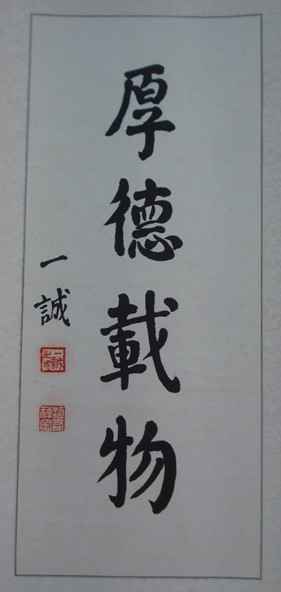 厚德載物
一誠